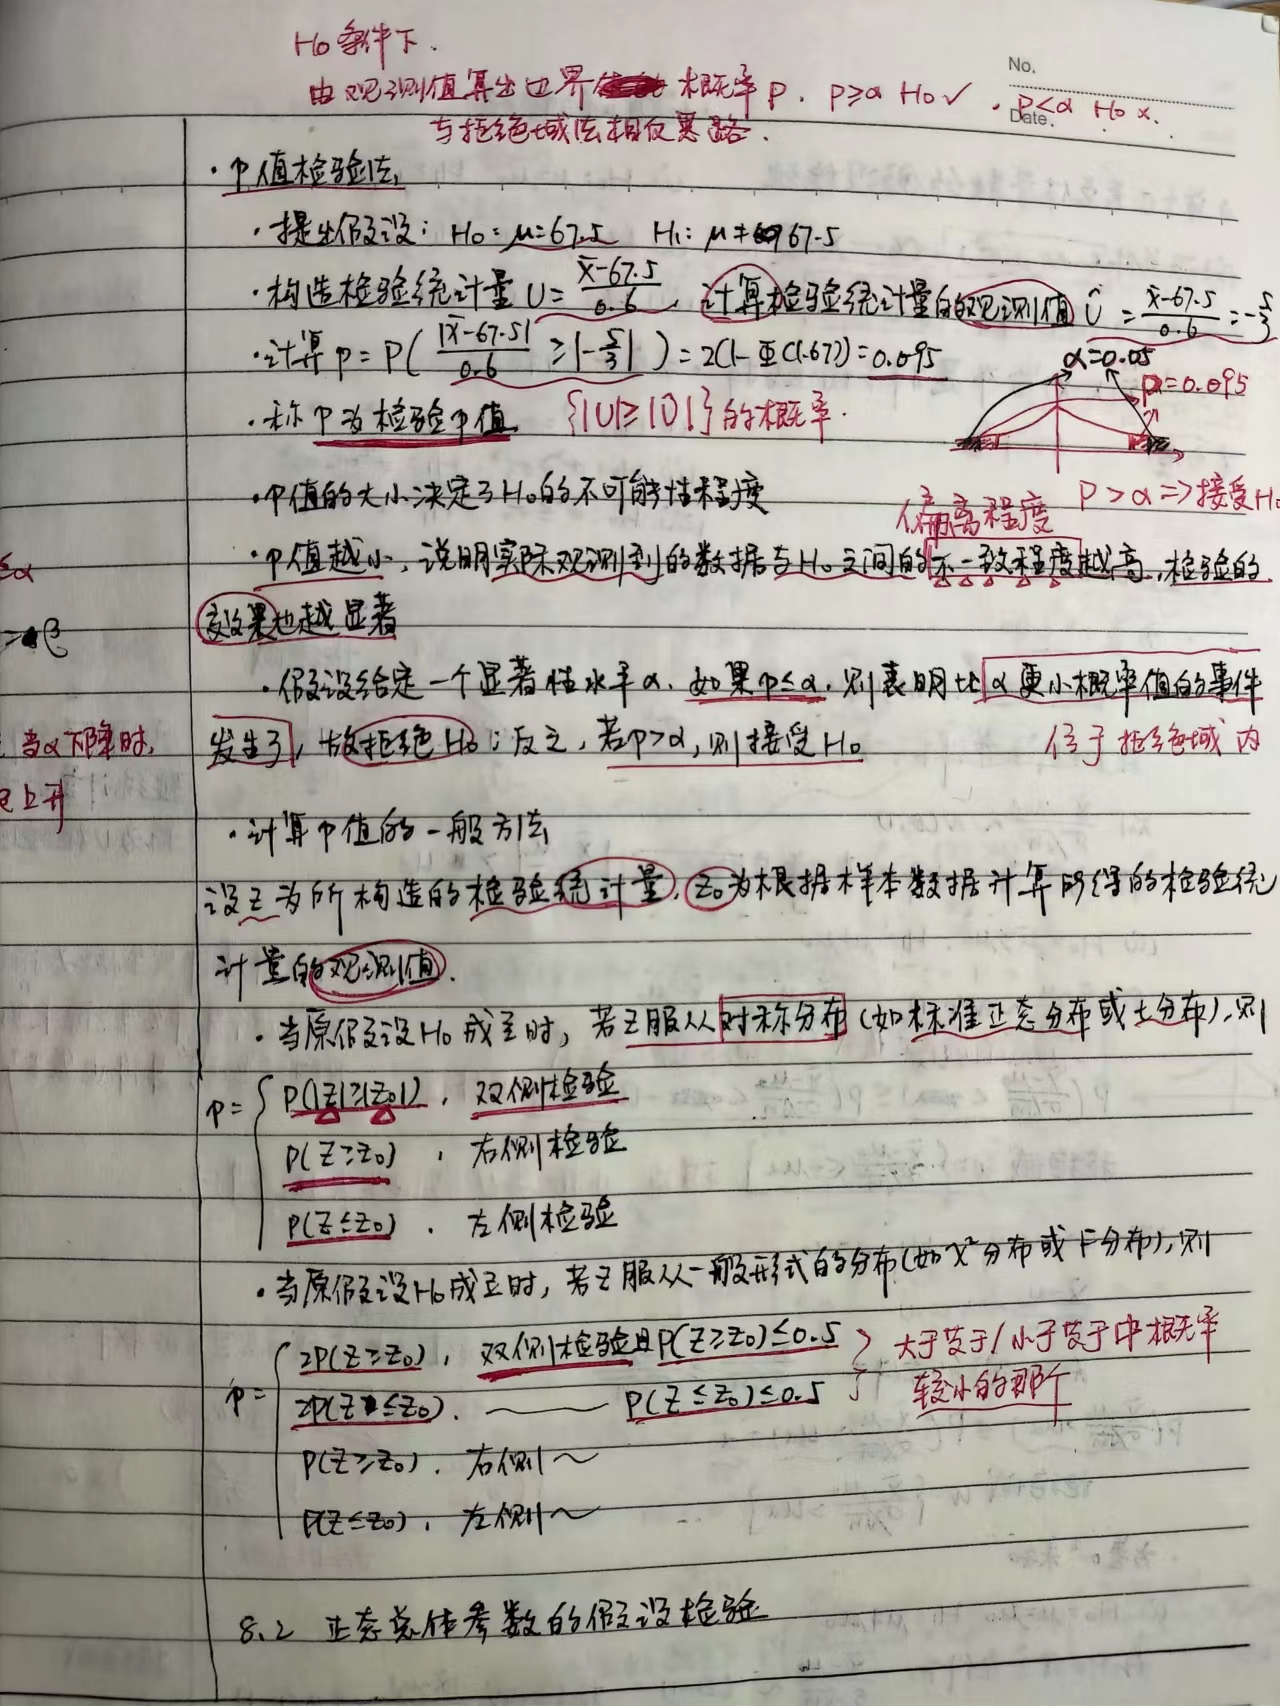 H₀条件下.
No.
由观测值算出边界 概率p. p≥α H₀√. p<α H₀ ×.
Date.
与拒绝域法相反思路.
·P值检验法
·提出假设: H₀: μ=67.5 H₁: μ≠67.5
·构造检验统计量 U=(x̄-67.5)/0.6, 计算检验统计量的观测值 Û=(x̄-67.5)/0.6=-5/3
·计算p=P(|x̄-67.5|/0.6 ≥|-5/3|)=2(1-Φ(1.67))=0.095
α=0.05
p=0.095
·称P为检验P值 {|U|≥|Û|}的概率.
·P值的大小决定了H₀的不可能性程度
P>α=>接受H₀
偏离程度
·P值越小, 说明实际观测到的数据与H₀之间的不一致程度越高, 检验的
≤α
效果也越显著
=β
·假设给定一个显著性水平α. 如果p≤α. 则表明比α更小概率值的事件
当α下降时,
发生了, 故拒绝H₀; 反之, 若p>α, 则接受H₀
位于拒绝域内
上升
·计算P值的一般方法
设Z为所构造的检验统计量. Z₀为根据样本数据计算所得的检验统
计量的观测值.
·当原假设H₀成立时, 若Z服从对称分布(如标准正态分布或t分布), 则
p={ P(|Z|≥|Z₀|), 双侧检验
P(Z≥Z₀), 右侧检验
P(Z≤Z₀). 左侧检验
·当原假设H₀成立时, 若Z服从一般形式的分布(如χ²分布或F分布), 则
p={ 2P(Z≥Z₀), 双侧检验且P(Z≥Z₀)≤0.5 } 大于等于/小于等于中概率
2P(Z≤Z₀). —— P(Z≤Z₀)≤0.5 较小的那个
P(Z≥Z₀). 右侧~
P(Z≤Z₀), 左侧~
8.2 正态总体参数的假设检验